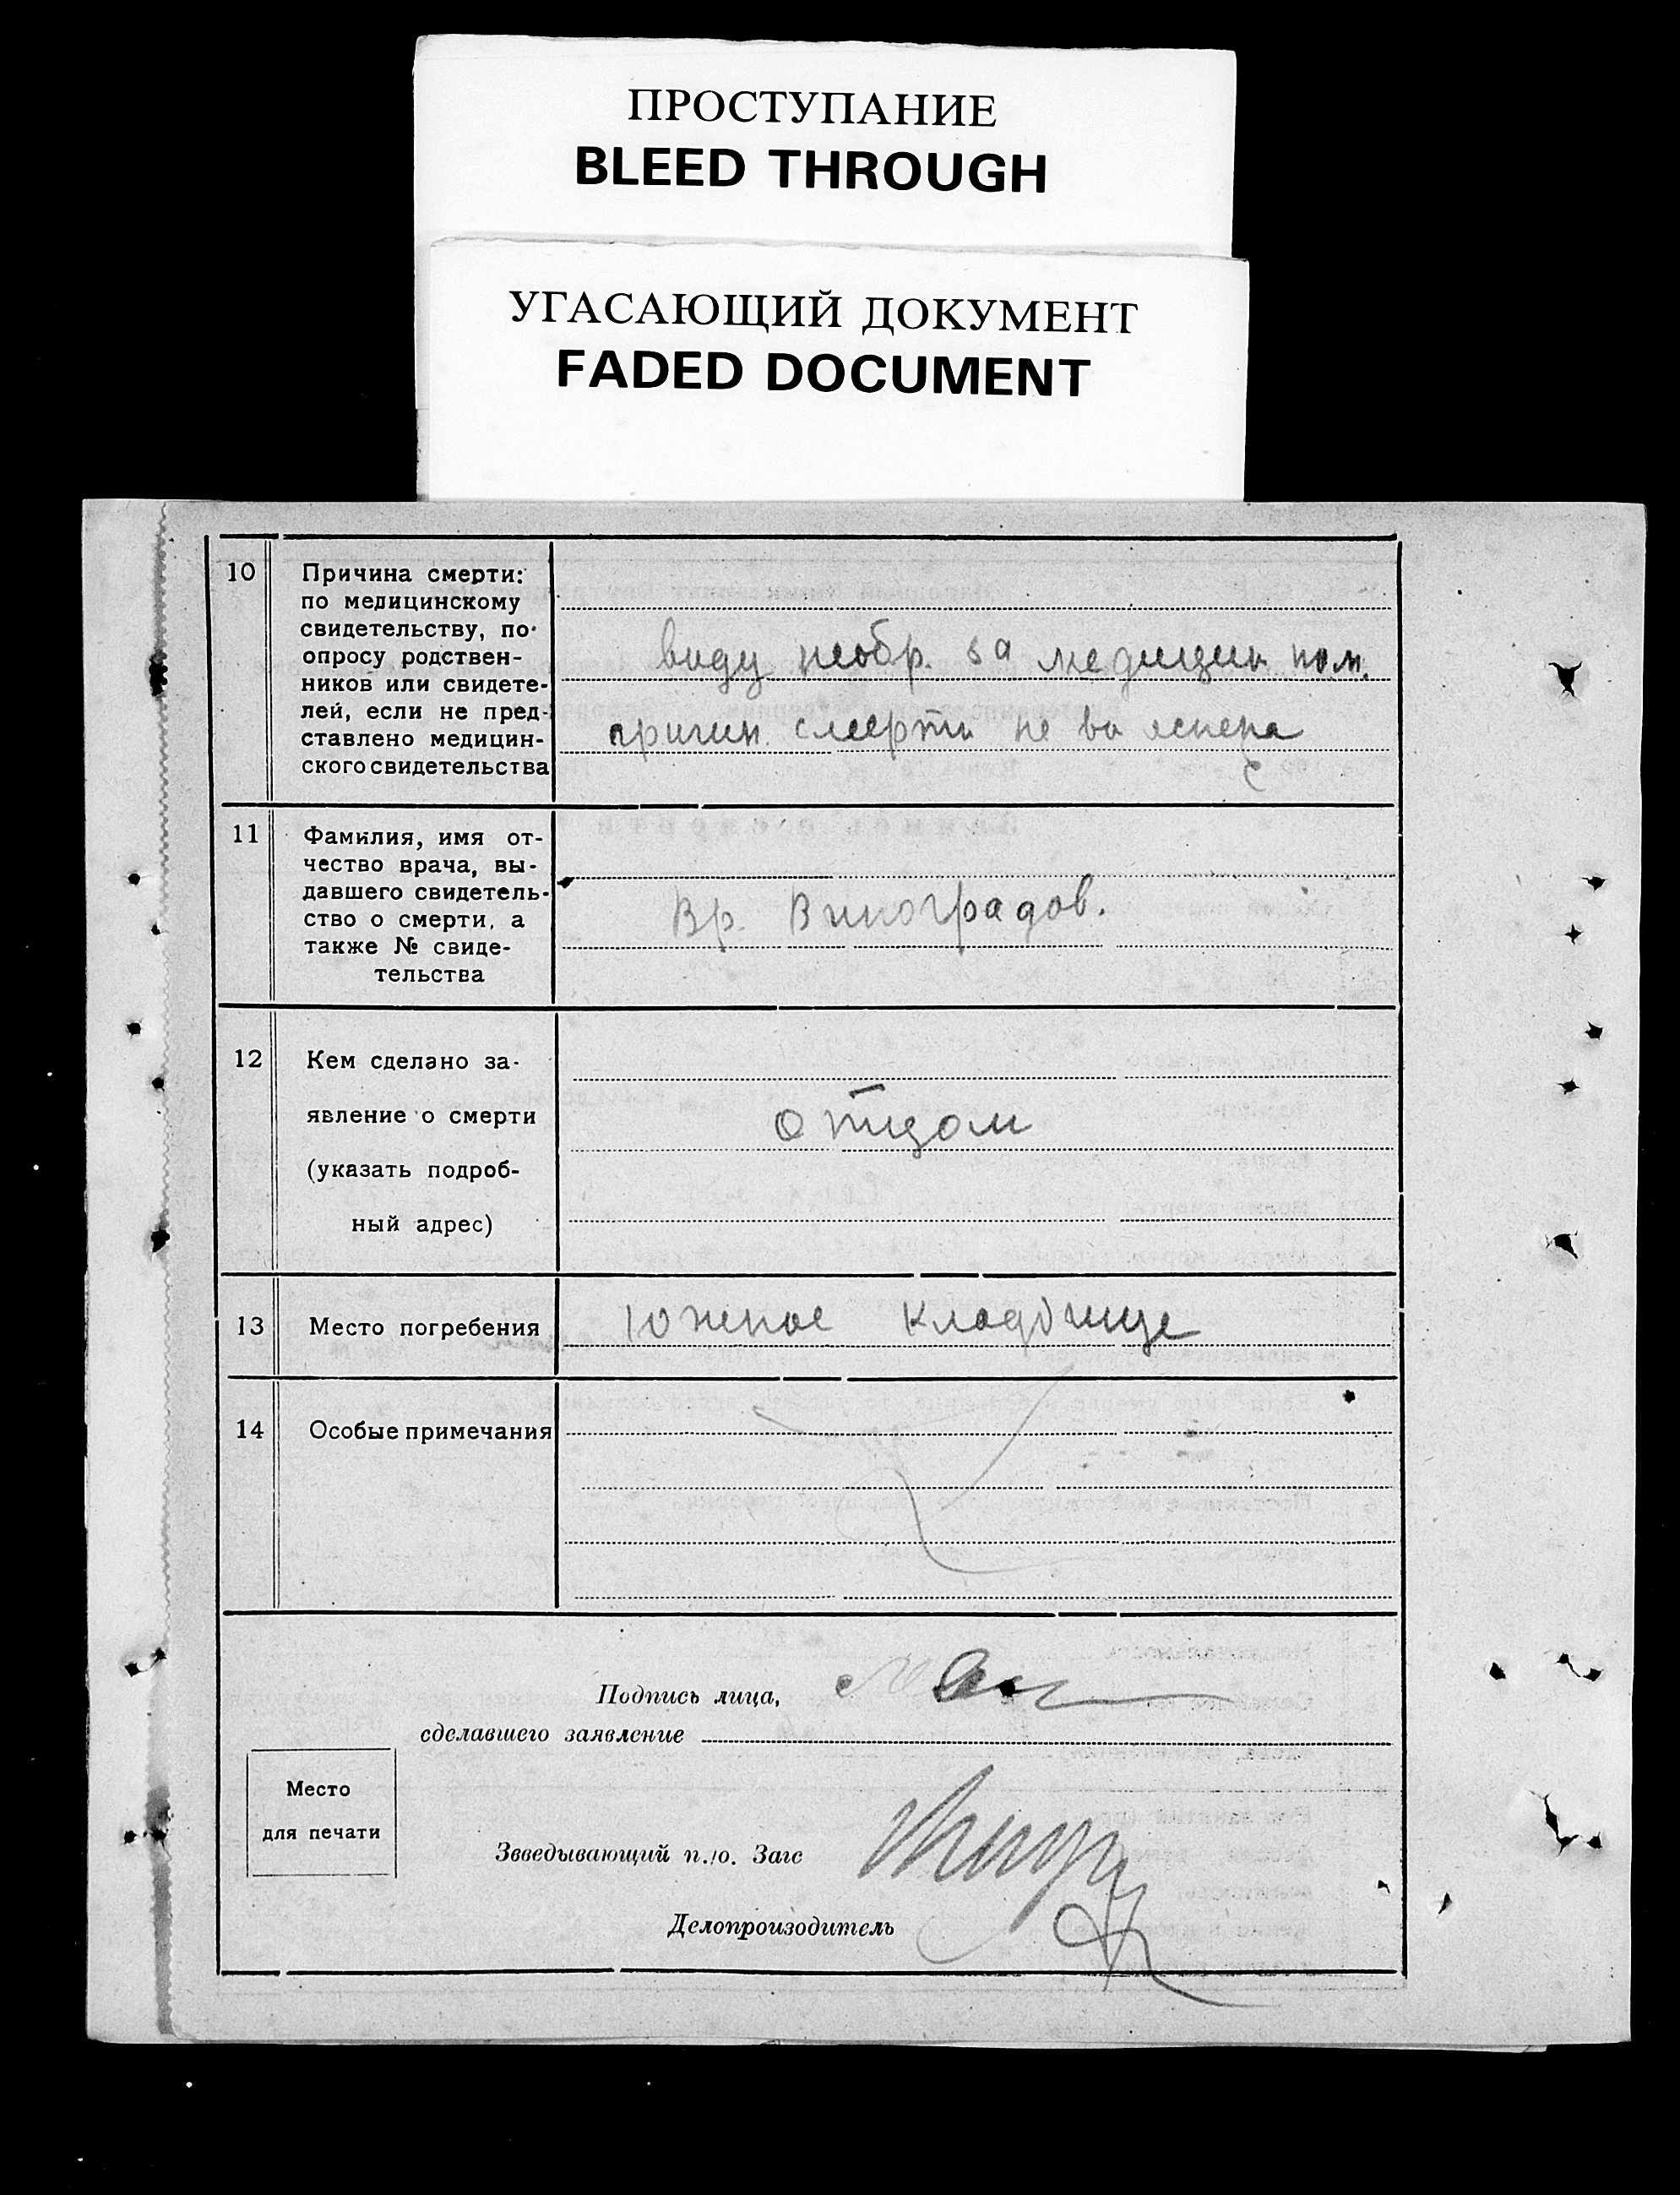 ПРОСТУПАНИЕ
BLEED THROUGH
УГАСАЮЩИЙ ДОКУМЕНТ
FADED DOCUMENT
10
Причина смерти:
по медицинскому
свидетельству, по
опросу родствен-
ников или свидете-
лей, если не пред-
ставлено медицин-
ского свидетельства
виду необр. за медицин. пом.
причин смерти не вы яснена
11
Фамилия, имя от-
чество врача, вы-
давшего свидетель-
ство о смерти, а
также № свиде-
тельства
Вр. Виноградов.
12
Кем сделано за-
явление о смерти
(указать подроб-
ный адрес)
отцом
13
Место погребения
Южное кладбище
14
Особые примечания
Подпись лица,
сделавшего заявление
Место
для печати
Зведывающий п./о. Загс
Делопроизодитель